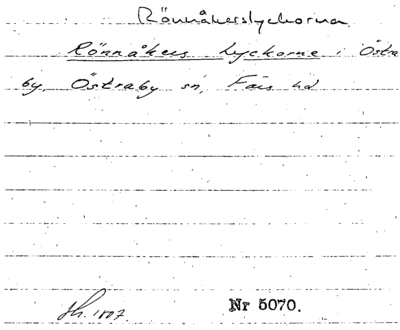 Rönnåkerslyckorna
Rönnåkers Lyckorne i Östra
by, Östraby sn, Färs hd
Sk. 1807.
Nr 5070.